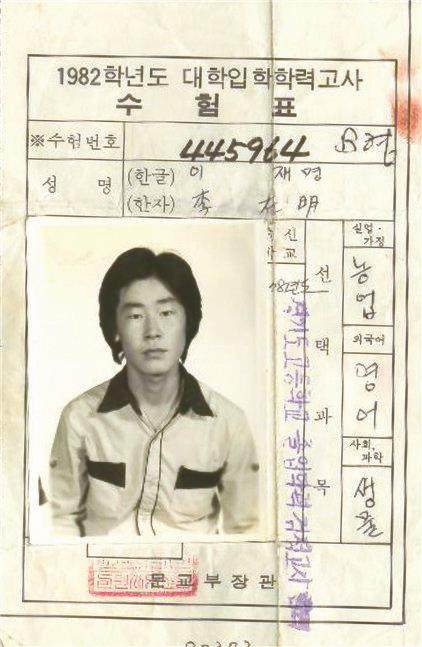 1982학년도 대학입학학력고사
수 험 표
※수험번호 445964
성 명
(한글) 이 재 명
(한자) 李 在 明
신
교
82년도
선택과목
실업·가정
농업
외국어
영어
사회,과학
생물
경기도 고등학교 졸업학력검정고시
문교부장관